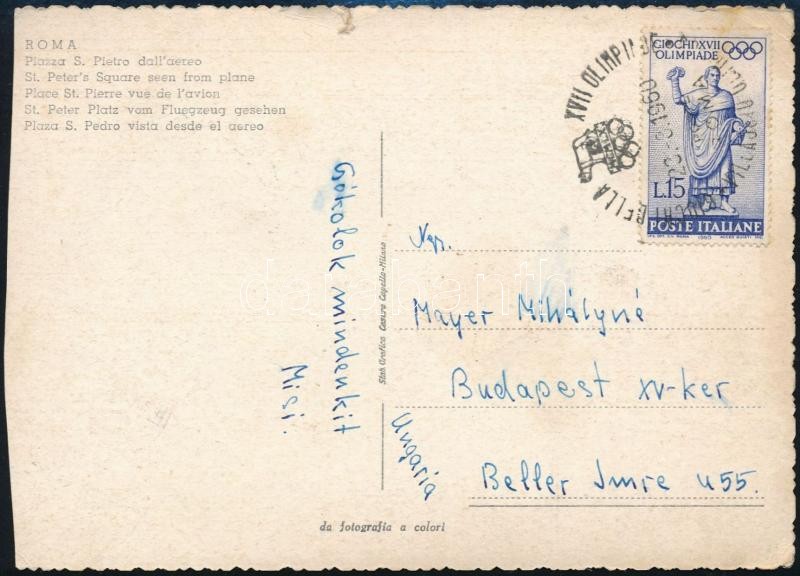 ROMA
Piazza S. Pietro dall'aereo
St. Peter's Square seen from plane
Place St. Pierre vue de l'avion
St. Peter Platz vom Fluegzeug gesehen
Plaza S. Pedro vista desde el aereo
GIOCHI XVII
OLIMPIADE
L.15
POSTE ITALIANE
1960
XVII OLIMPIADE
GIOCHI DELLA
1960
Csókolok mindenkit
Misi.
Stab. Grafico Cesare Capello-Milano
Mayer Mihályné
Budapest XV-ker
Beller Imre u 55.
Ungaria
da fotografia a colori